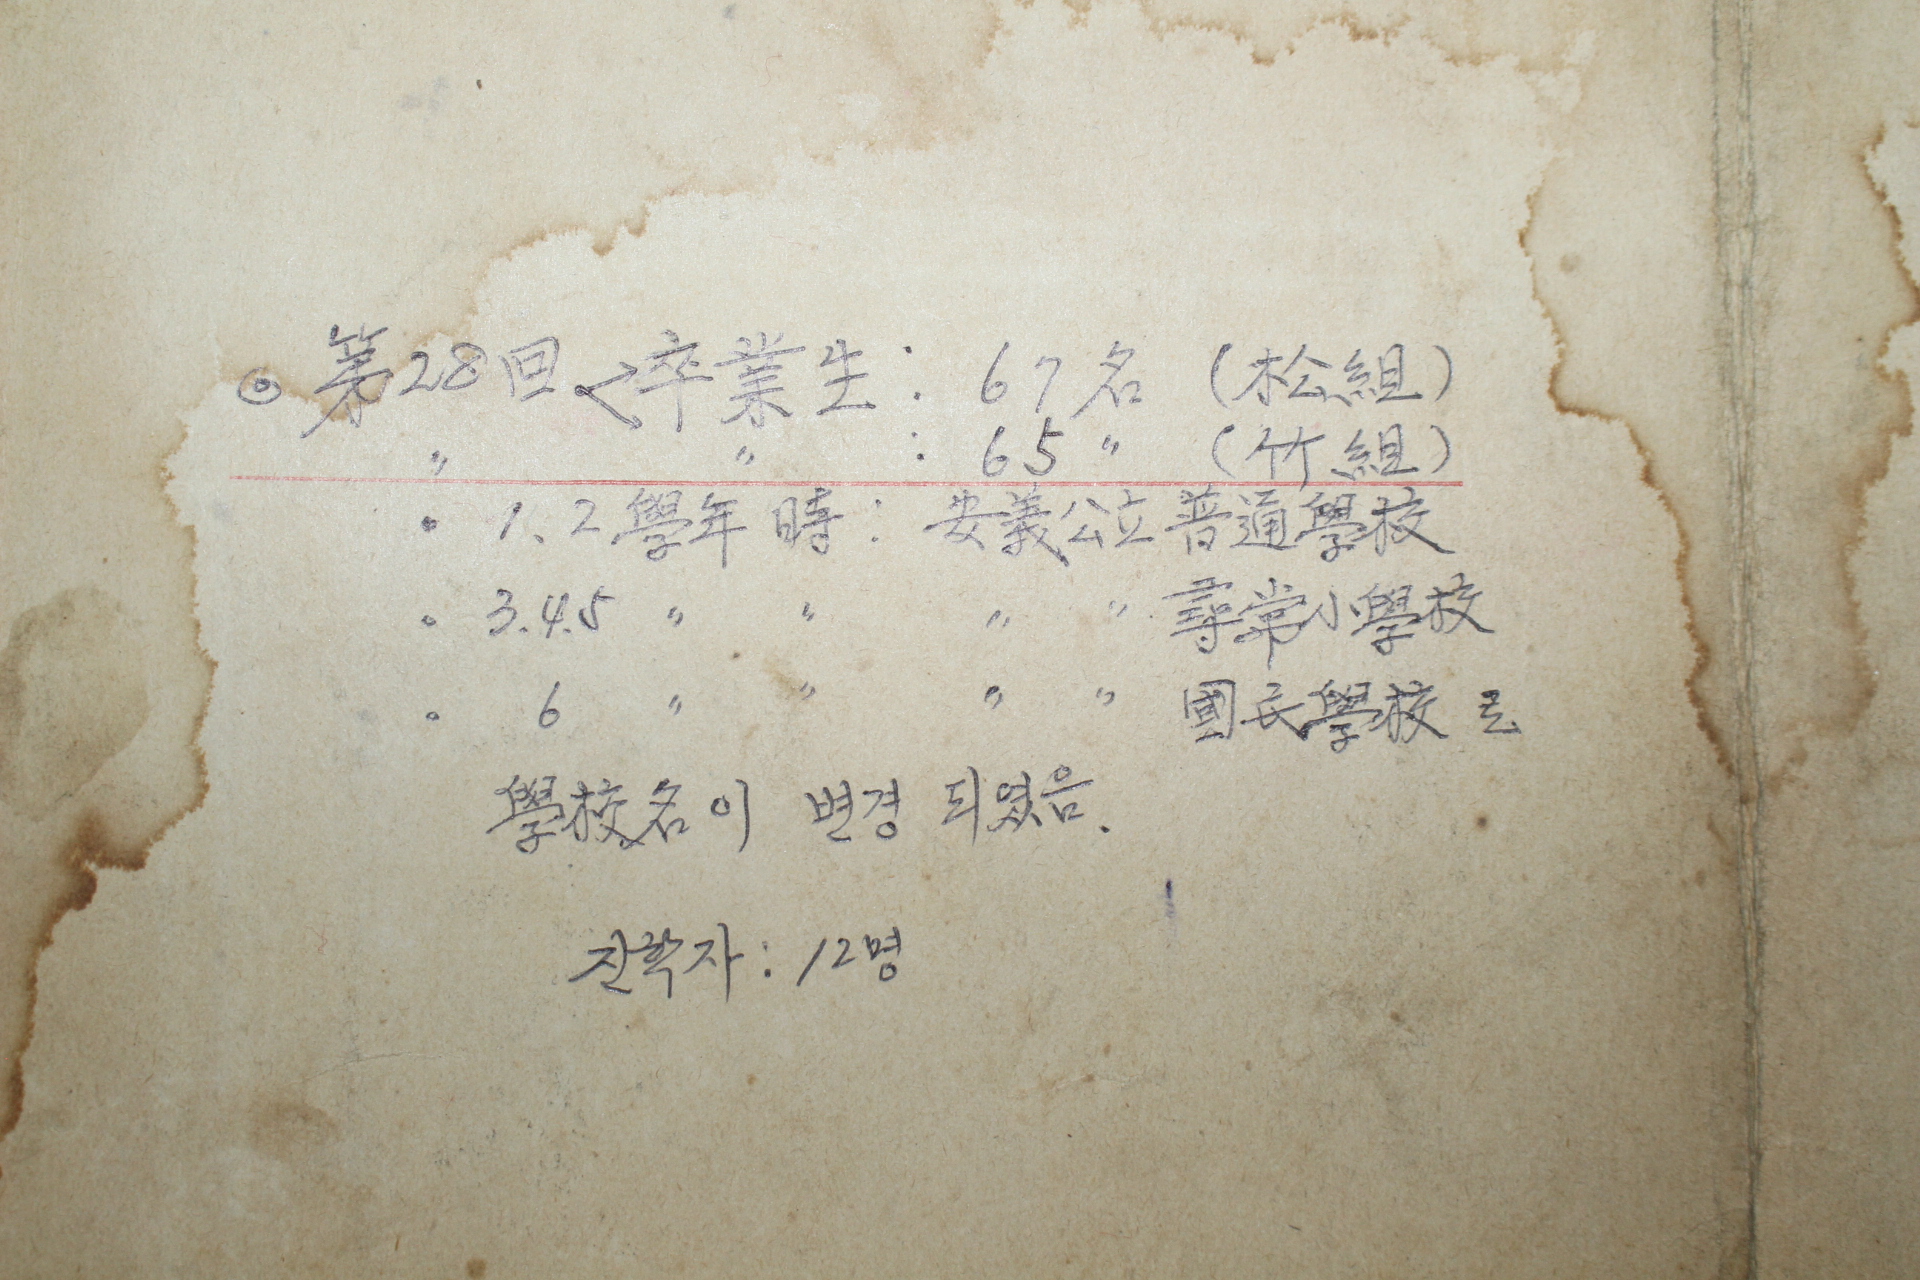 ◎ 第28回 卒業生 : 67名 (松組)
〃 〃 : 65〃 (竹組)
• 1.2學年 時 : 安義公立普通學校
• 3.4.5 〃 〃 〃 〃 尋常小學校
• 6 〃 〃 〃 〃 國民學校 로
學校名이 변경 되였음.
잔학자 : 12명